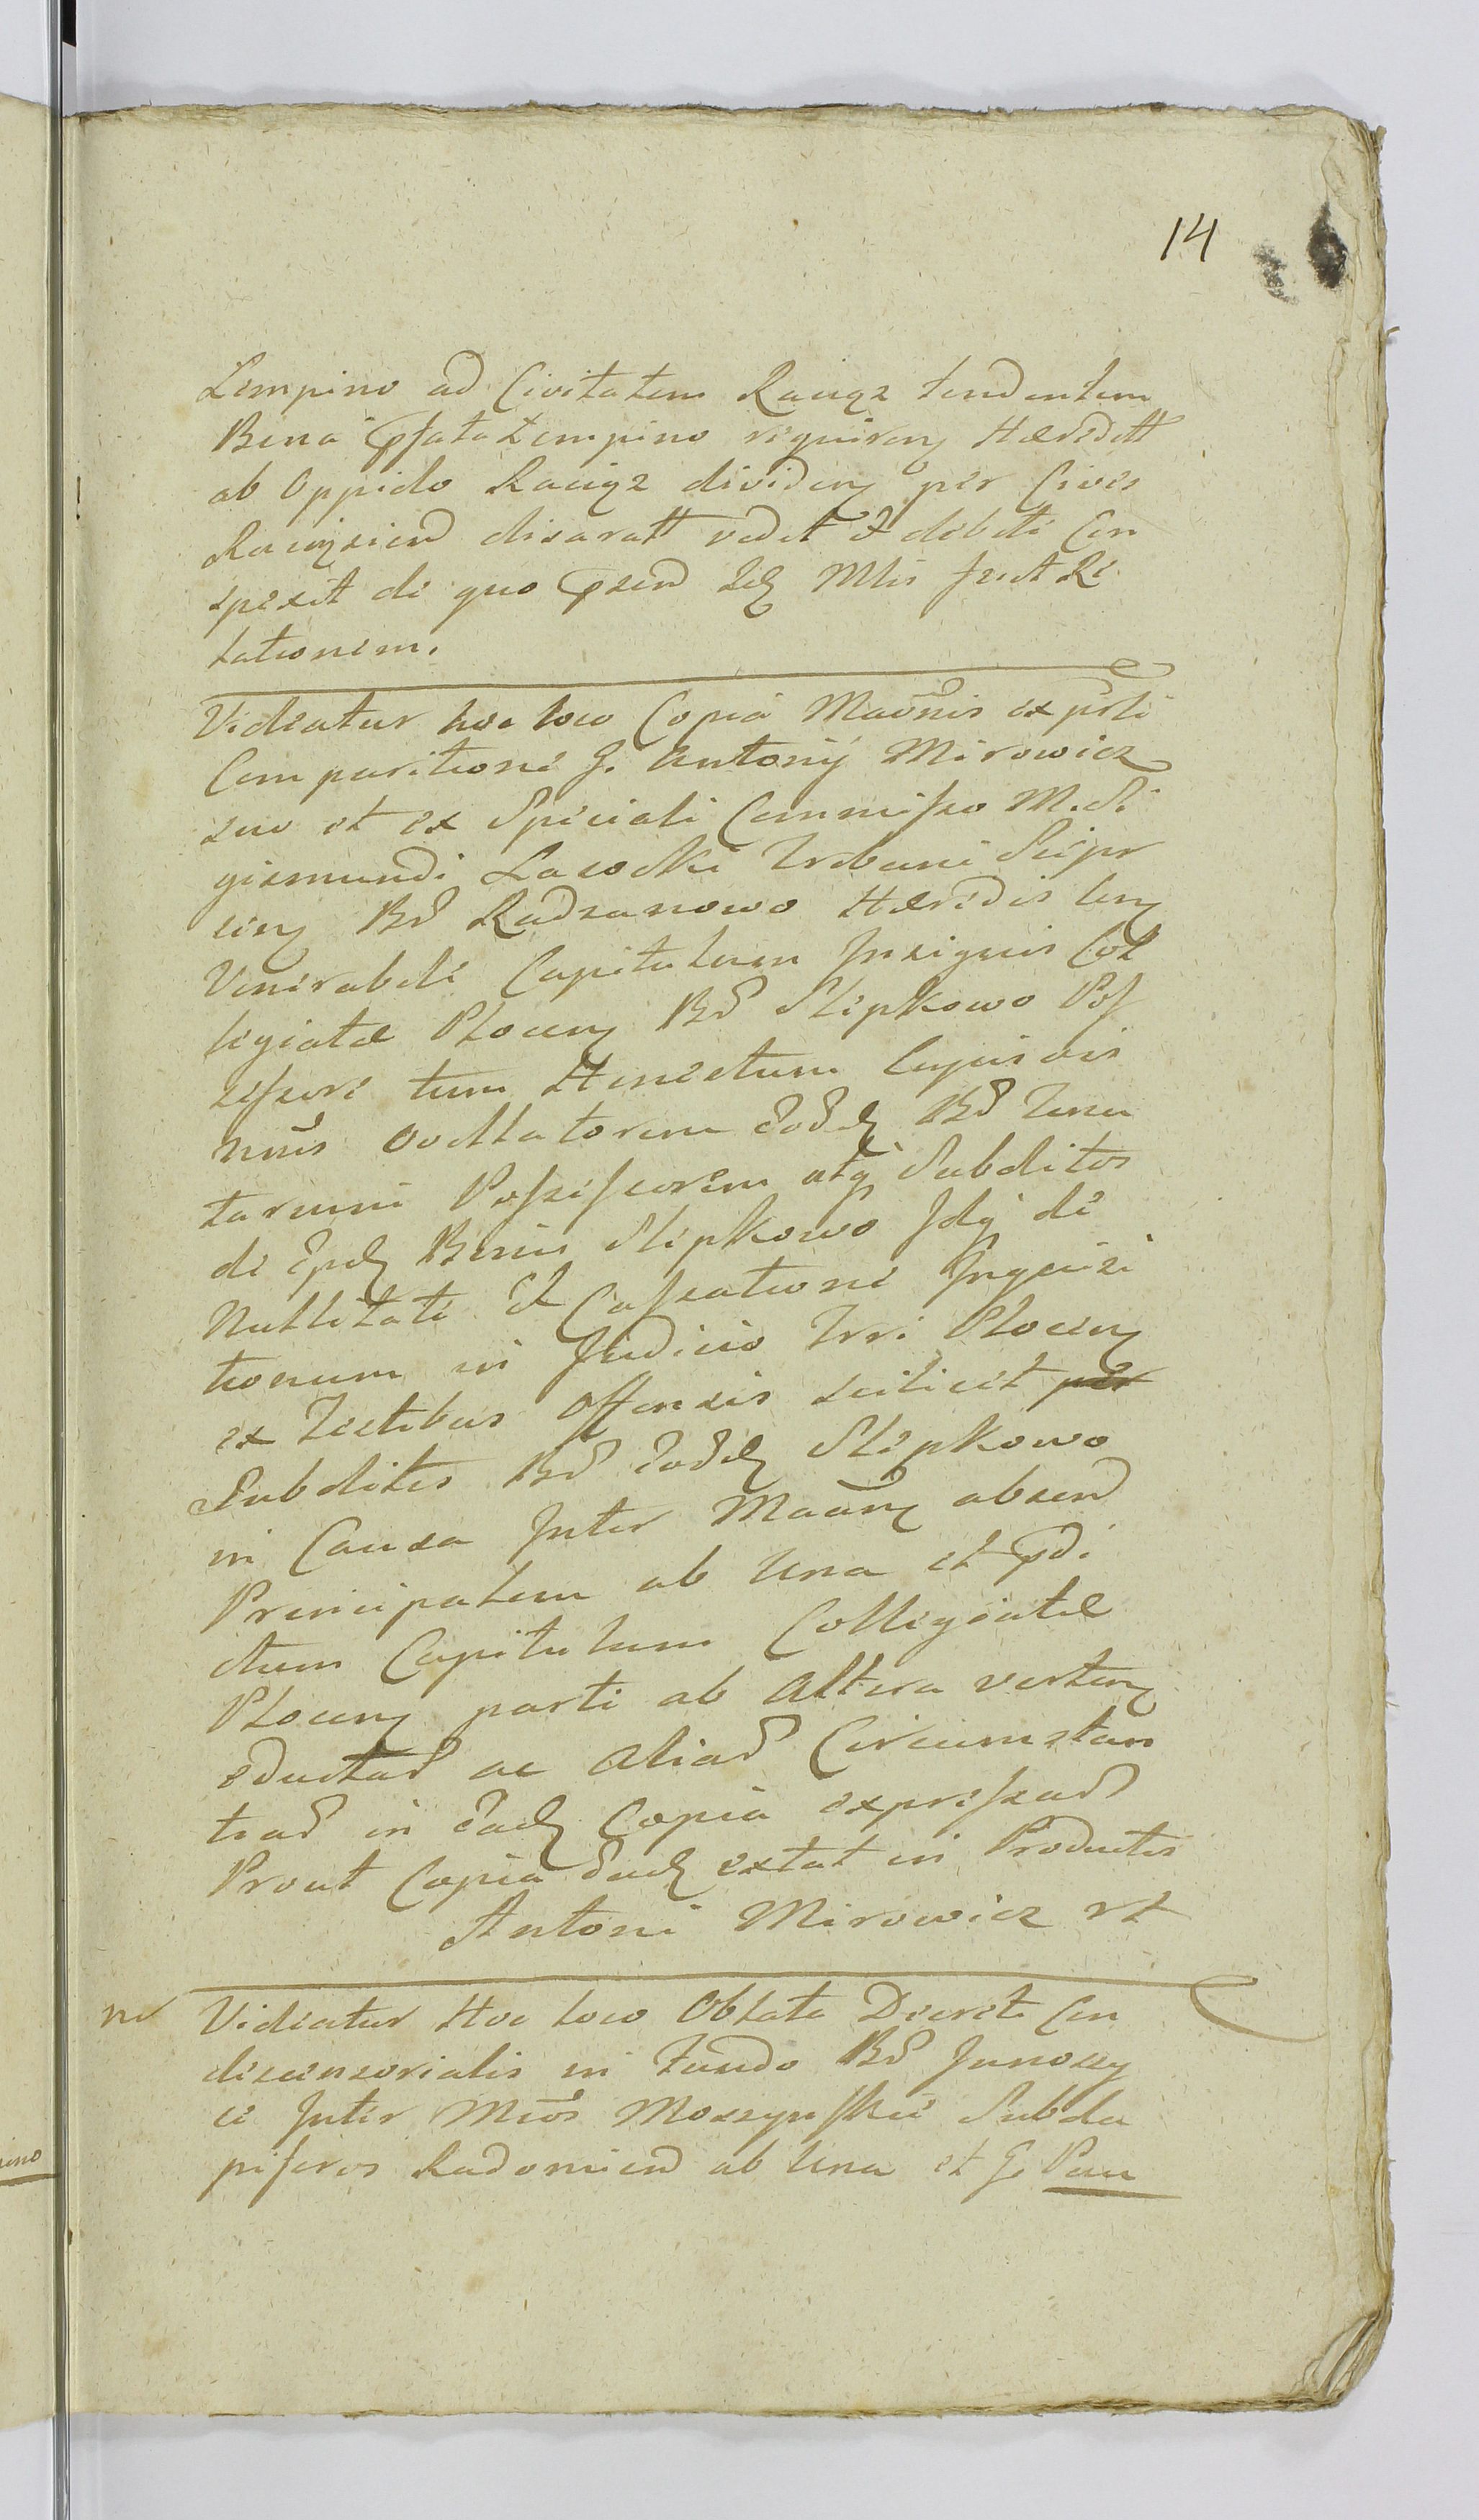 14
Lempino ad Civitatem Raciąz tendentem
Bona pfata Lempino requiren Hæredtt
ab Oppido Raciąz dividen per Cives
Raciązien disaratt vidit & debite Con
spexit de quo psen Mtis fecit Re
lationem.
Videatur hoc loco Copia Maōnis ex psti
Comparitione G. Antonij Mirowicz
suo et ex Speciali Commisso M. Si
gismundi Lasocki Tribuni Sierpr
cien Bd Radzanowo Hæredis Con
Venerabile Capitulum Insignis Col
legiatæ Plocen Bd Slepkowo Pos
sessore tum Honestum cujusvis
nnis ovellatorem eod Bd Tenu
tarium Possessorem atq Subditos
de Bonis Slepkowo Idq de
Nullitate et Cassatione Inquisi
tionum in Judicio Trri Plocen
ex Testibus Offensis scilicet per
Subditis Bd eod Slepkowo
in Causa Inter Maan absen
Principalem ab Una et pdi
ctum Capitulum Collegiatæ
Plocen parte ab Altera verten
eductas ac Alias Circumstan
tias in ead Copia expressas
Prout Copia ead extat in Productis
Antoni Mirowicz rt
Videatur Hoc loco Oblata Decreti Con
descensorialis in Fundo Bd
ci Inter Mcos Moszynskie Subda
piferos Radomien ab Una et G. Pau
ino